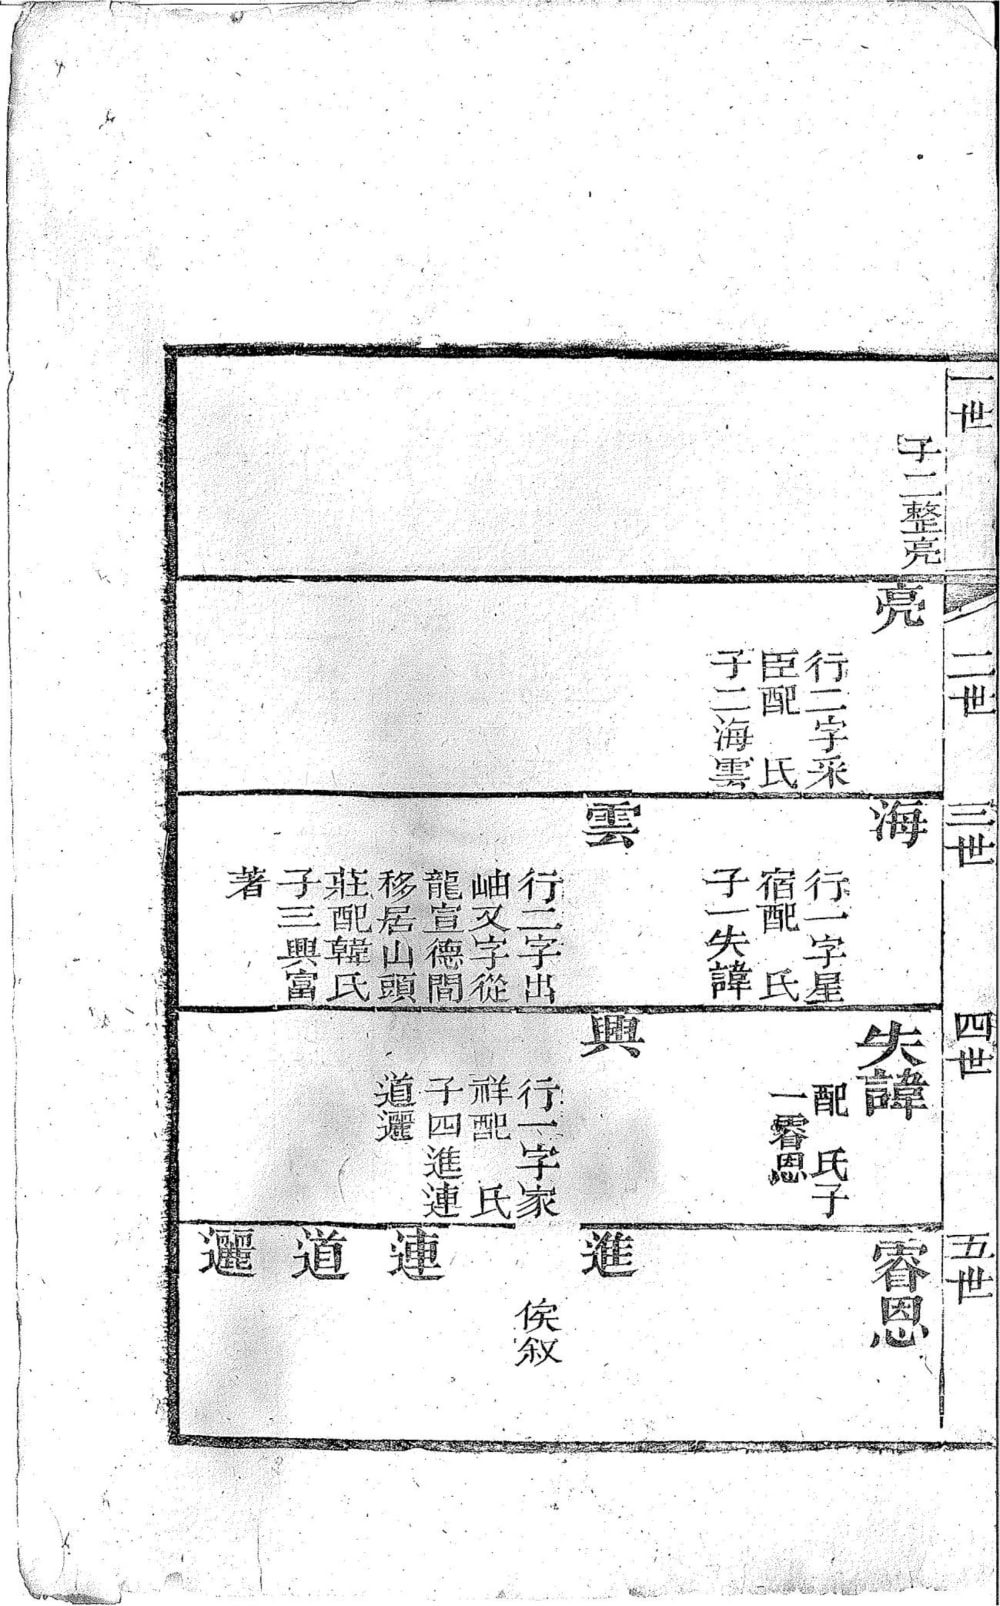 一世
子二整亮
二世
亮
行二字采
臣配　氏
子二海雲
三世
海
行一字星
宿配　氏
子一失諱
雲
行二字出
岫又字從
龍宣德間
移居山頭
莊配韓氏
子三興富
著
四世
失諱
配　氏子
一睿恩
興
行一字家
祥配　氏
子四進連
道邐
五世
睿恩
進
俟叙
連
道
邐